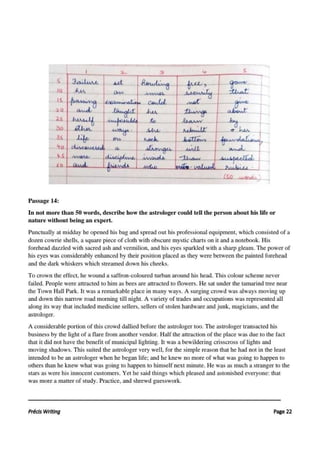 1 2 3 4 5
5 Failure set Rowling free, gave
10 her an inner security that
15 passing examination could not give
20 and taught her things about
25 herself impossible to learn by
30 other ways she rebuilt her
35 life on rock bottom foundations,
40 discovered a stronger will and
45 more discipline inwards than suspected
50 and friends who value rubies
(50 words)
Passage 14:
In not more than 50 words, describe how the astrologer could tell the person about his life or
nature without being an expert.
Punctually at midday he opened his bag and spread out his professional equipment, which consisted of a
dozen cowrie shells, a square piece of cloth with obscure mystic charts on it and a notebook. His
forehead dazzled with sacred ash and vermilion, and his eyes sparkled with a sharp gleam. The power of
his eyes was considerably enhanced by their position placed as they were between the painted forehead
and the dark whiskers which streamed down his cheeks.
To crown the effect, he wound a saffron-coloured turban around his head. This colour scheme never
failed. People were attracted to him as bees are attracted to flowers. He sat under the tamarind tree near
the Town Hall Park. It was a remarkable place in many ways. A surging crowd was always moving up
and down this narrow road morning till night. A variety of trades and occupations was represented all
along its way that included medicine sellers, sellers of stolen hardware and junk, magicians, and the
astrologer.
A considerable portion of this crowd dallied before the astrologer too. The astrologer transacted his
business by the light of a flare from another vendor. Half the attraction of the place was due to the fact
that it did not have the benefit of municipal lighting. It was a bewildering crisscross of lights and
moving shadows. This suited the astrologer very well, for the simple reason that he had not in the least
intended to be an astrologer when he began life; and he knew no more of what was going to happen to
others than he knew what was going to happen to himself next minute. He was as much a stranger to the
stars as were his innocent customers. Yet he said things which pleased and astonished everyone: that
was more a matter of study. Practice, and shrewd guesswork.
Précis Writing Page 22